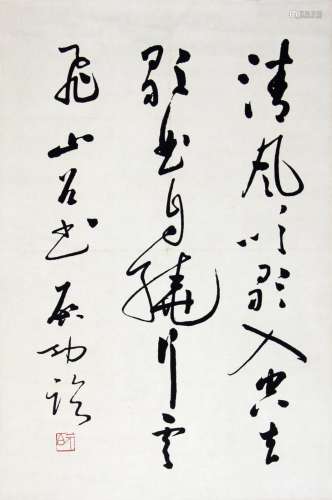 清風吹歌入空去
歌曲自繞行雲
飛山谷書启功臨